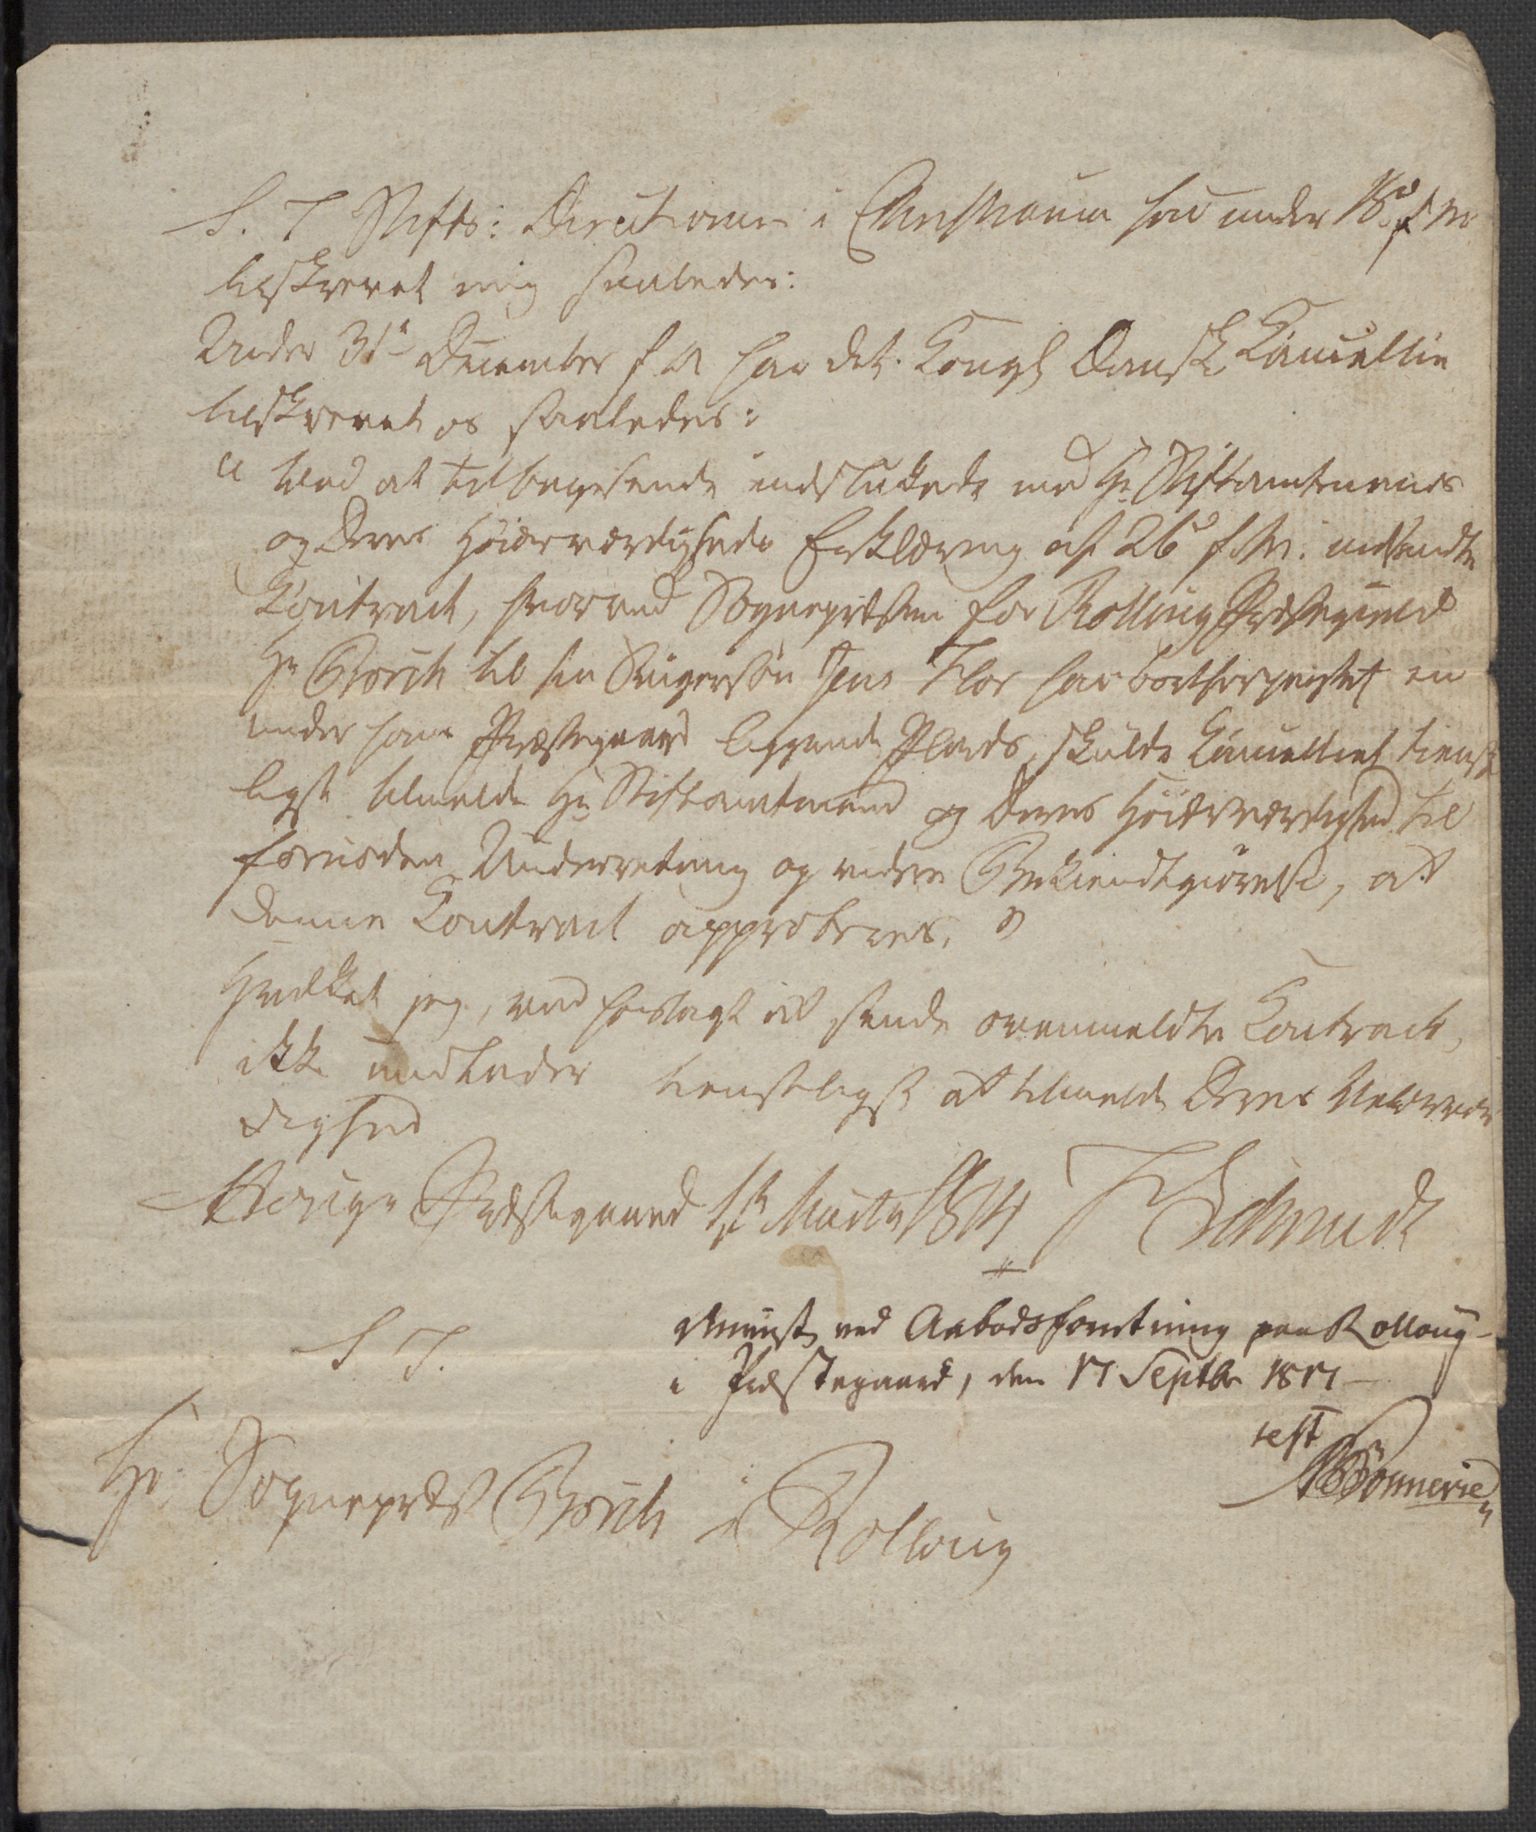 S. T. Stifts: Directionen i Christiania har under 18de f M
tilskrevet mig saaledes:
Under 31te December f A har det Kongl Danske Cancellie
tilskrevet os saaledes:
" Ved at tilbagesende indsluttede med Hr Stiftamtmands
og Deres Høiærværdigheds Erklæring af 26de f. M. indsendte
Contract, hvorved Sognepresten for Rolloug Præstegield
Hr Borch til sin Svigersøn Jens Flor har bortforpagtet en
under hans Præstegaard liggende Plads, skulde Cancelliet tienst
ligst tilmelde Hr Stiftamtmand og Deres Høiærværdighed til
fornøden Underretning og videre Bekiendtgiørelse, at
denne Contract approberes. "
Hvilket jeg, ved hoslagt at sende ovenmeldte Contract,
ikke undlader tienstligst at tilmelde Deres Velærvær
dighed
Præstegaard Marts 1814 Schmidt
S T.
ved Aabodsforretning paa Rolloug
Præstegaard, den 17 Septbr 1817
test
Hr. Sognepræst Borch i Rolloug